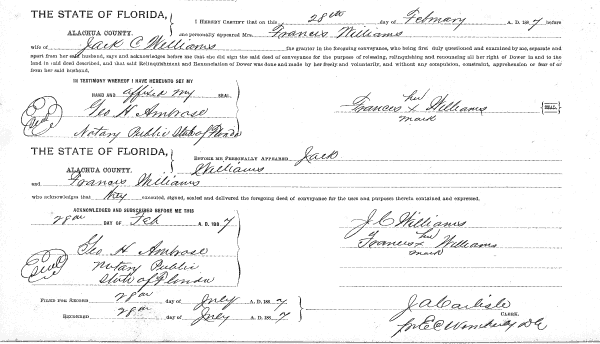 THE STATE OF FLORIDA,
ALACHUA COUNTY.
I HEREBY CERTIFY that on this 28th day of February A. D. 1887 before
me personally appeared Mrs. Francis Williams
wife of Jack C Williams the grantor in the foregoing conveyance, who being first duly questioned and examined by me, separate and
apart from her said husband, says and acknowledges before me that she did sign the said deed of conveyance for the purpose of releasing, relinquishing and renouncing all her right of Dower in and to the
land in said deed described, and that said Relinquishment and Renunciation of Dower was done and made by her freely and voluntarily, and without any compulsion, constraint, apprehension or fear of or
from her said husband,
IN TESTIMONY WHEREOF I HAVE HEREUNTO SET MY
HAND AND affixed my SEAL.
Seal Geo H Ambrose
Notary Public State of Florida
her
Francis x Williams SEAL
mark
THE STATE OF FLORIDA,
ALACHUA COUNTY.
BEFORE ME PERSONALLY APPEARED Jack
Williams
and Francis Williams
who acknowledges that they executed, signed, sealed and delivered the foregoing deed of conveyance for the uses and purposes therein contained and expressed.
ACKNOWLEDGED AND SUBSCRIBED BEFORE ME THIS
28th DAY OF Feb A. D. 1887
Seal Geo H Ambrose
Notary Public
State of Florida
J C Williams
her
Francis x Williams
mark
FILED FOR RECORD 28th day of July A. D. 1887
RECORDED 28th day of July A. D. 1887
J A Carlisle
CLERK.
per E C Wimberly D C